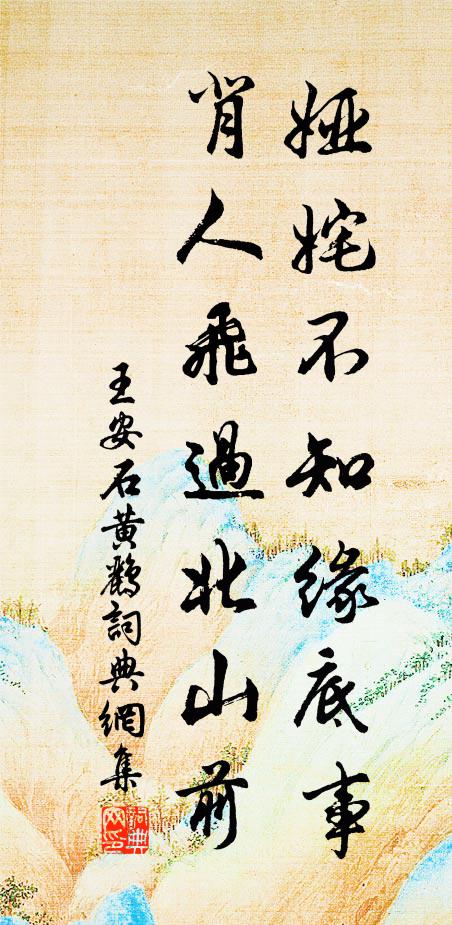 娅姹不知緣底事
背人飛過北山前
王安石黃鸝詞典網集
詞典网印